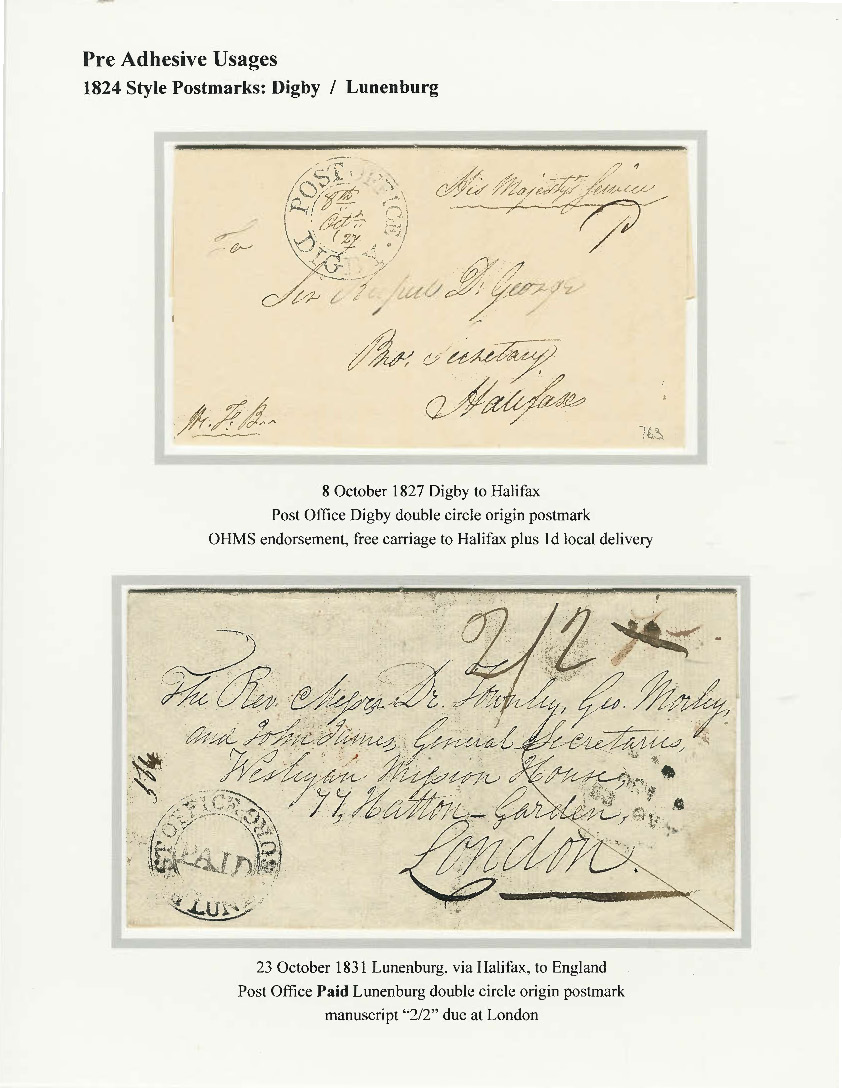 Pre Adhesive Usages
1824 Style Postmarks: Digby / Lunenburg
POST OFFICE
8th
Octr
27
DIGBY
His Majesty's Service
To
Sir Rupert D. George
Secretary
Halifax
763
8 October 1827 Digby to Halifax
Post Office Digby double circle origin postmark
OHMS endorsement, free carriage to Halifax plus 1d local delivery
2/2
The Rev. Messrs Dr. Townley, Geo. Morley,
and John James, General Secretaries,
Wesleyan Mission House,
77, Hatton-Garden,
London.
PAID
23 October 1831 Lunenburg. via Halifax, to England
Post Office Paid Lunenburg double circle origin postmark
manuscript "2/2" due at London